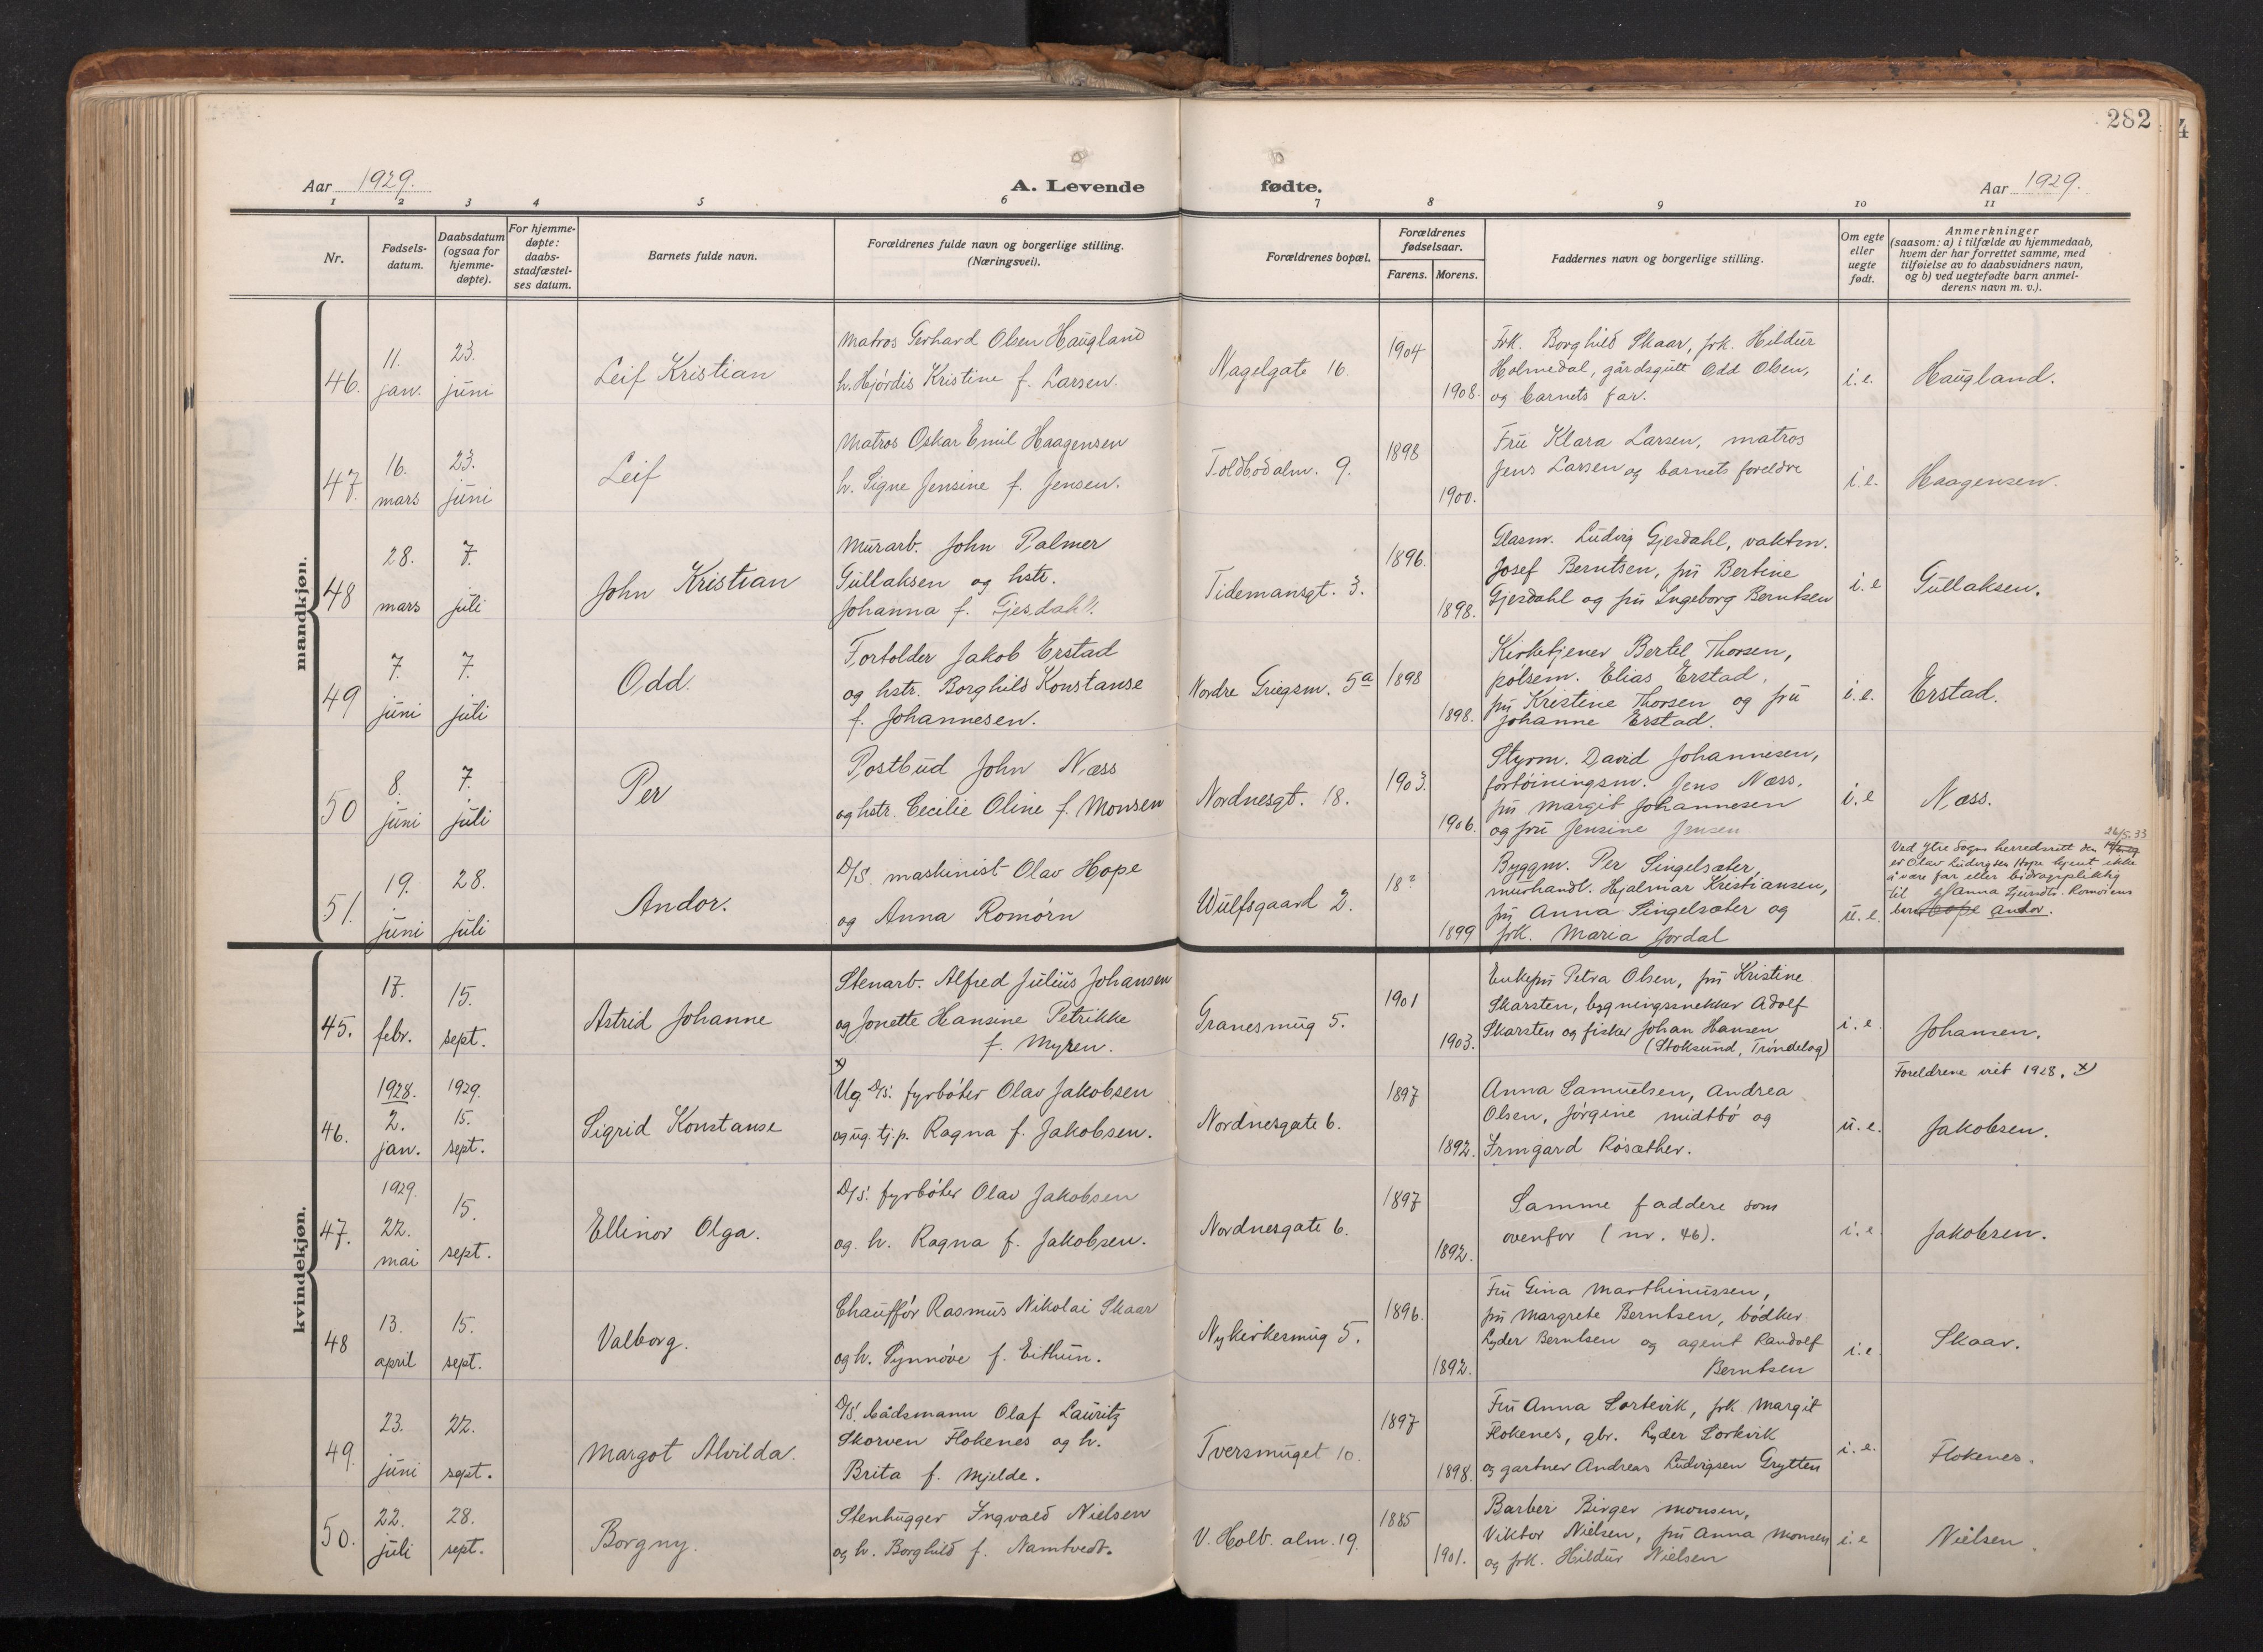 282
4
Aar 1929.
A. Levende
fødte.
Aar 1929.
1 2 3 4 5 6 7 8 9 10 11
Nr.
Fødsels-
datum.
Daabsdatum
(ogsaa for
hjemme-
døpte).
For hjemme-
døpte:
daabs-
stadfæstel-
ses datum.
Barnets fulde navn.
Forældrenes fulde navn og borgerlige stilling.
(Næringsvei).
Forældrenes bopæl.
Forældrenes
fødselsaar.
Farens. Morens.
Faddernes navn og borgerlige stilling.
Om egte
eller
uegte
født.
Anmerkninger
(saasom: a) i tilfælde av hjemmedaab,
hvem der har forrettet samme, med
tilføielse av to daabsvidners navn,
og b) ved uegtefødte barn anmel-
derens navn m. v.).
mandkjøn.
46.
11.
jan.
23.
juni
Leif Kristian
Matros Gerhard Olsen Haugland
h. Hjørdis Kristine f. Larsen.
Nagelgate 16.
1904
1908.
Frk. Borghild Skaar, frk. Hildur
Holmedal, gårdsgutt Odd Olsen,
og barnets far.
i. e.
Haugland.
47.
16.
mars
23.
juni
Leif
Matros Oskar Emil Haagensen
h. Signe Jensine f. Jensen.
Toldbodalm. 9.
1898
1900.
Fru Klara Larsen, matros
Jens Larsen og barnets foreldre
i. e.
Haagensen.
48
28.
mars
7.
juli
John Kristian
Murarb. John Palmer
Gullaksen og hstr.
Johanna f. Gjesdahl.
Tidemansgt. 3.
1896.
1898.
Glasm. Ludvig Gjesdahl, vaktm.
Josef Berntsen, fru Bertine
Gjesdahl og fru Ingeborg Berntsen
i. e
Gullaksen.
49
7.
juni
7.
juli
Odd.
Fortolder Jakob Erstad
og hstr. Borghild Konstanse
f. Johannesen.
Nordre Griegsm. 5a
1898
1898.
Kirketjener Bertel Thorsen,
pølsem. Elias Erstad,
fru Kristine Thorsen og fru
Johanne Erstad.
i. e.
Erstad.
50
8.
juni
7.
juli
Per
Postbud John Næss
og hstr. Cecilie Oline f. Monsen
Nordnesgt. 18.
1903.
1906.
Styrm. David Johannesen,
fortøiningsm. Jens Næss,
fru Margit Johannesen
og fru Jensine Jensen
i. e
Næss.
51.
19.
juni
28.
juli
Andor.
D/S. maskinist Olav Hope
og Anna Romørn
Wulfsgaard 2.
18?
1899
Byggm. Per Singelsæter,
murhandl. Hjalmar Kristiansen,
fru Anna Singelsæter og
frk. Maria Jordal
u. e.
24/5.33
Ved Ytre Sogns herredsrett den
er Olav Ludvigsen Hope kjent ikke
å være far eller bidragspliktig
til Anna
barn Hope Andor.
kvindekjøn.
45.
17.
febr.
15.
sept.
Astrid Johanne
Stenarb. Alfred Julius Johansen
og Jonette Hansine Petrikke
f. Myren.
Granesmug 5.
1901
1903.
Enkefru Petra Olsen, fru Kristine
Skarsten, bygningssnekker Adolf
Skarsten og fisker Johan Hansen
(Stoksund, Trøndelag)
i. e.
Johansen.
46.
1928.
2.
jan.
1929.
15.
sept.
Sigrid Konstanse
x)
Ug. D/S. fyrbøter Olav Jakobsen
og ug. tj.p. Ragna f. Jakobsen.
Nordnesgate 6.
1897
1892.
Anna Samuelsen, Andrea
Olsen, Jørgine Midtbø og
Irmgard Røsæther.
u. e.
Foreldrene viet 1928. x)
Jakobsen.
47.
1929.
22.
mai
15.
sept.
Ellinor Olga.
D/S. fyrbøter Olav Jakobsen
og h. Ragna f. Jakobsen.
Nordnesgate 6.
1897
1892.
Samme faddere som
ovenfor (nr. 46).
i. e
Jakobsen.
48
13.
april
15.
sept.
Valborg.
Chauffør Rasmus Nikolai Skaar
og h. Synnøve f. Eithun.
Nykirkesmug 5.
1896.
1892.
Fru Gina Marthinussen,
fru Margrete Berntsen, bødker
Lyder Berntsen og agent Randolf
Berntsen
i. e
Skaar.
49.
23.
juni
22.
sept.
Margot Alvilda.
D/S. bådsmann Olaf Lauritz
Skorven Flokenes og h.
Brita f. Mjelde.
Tversmuget 10.
1897
1898.
Fru Anna Sortevik, frk Margit
Flokenes, gbr. Lyder Sorkvik
og gartner Andreas Ludvigsen Grytten
i. e.
Flokenes.
50.
22.
juli
28.
sept.
Borgny.
Stenhugger Ingvald Nielsen
og h. Borghild f. Namtvedt.
V. Holb. alm. 19.
1885
1901.
Barber Birger Monsen,
Viktor Nielsen, fru Anna Monsen
og frk. Hildur Nielsen
i. e
Nielsen.